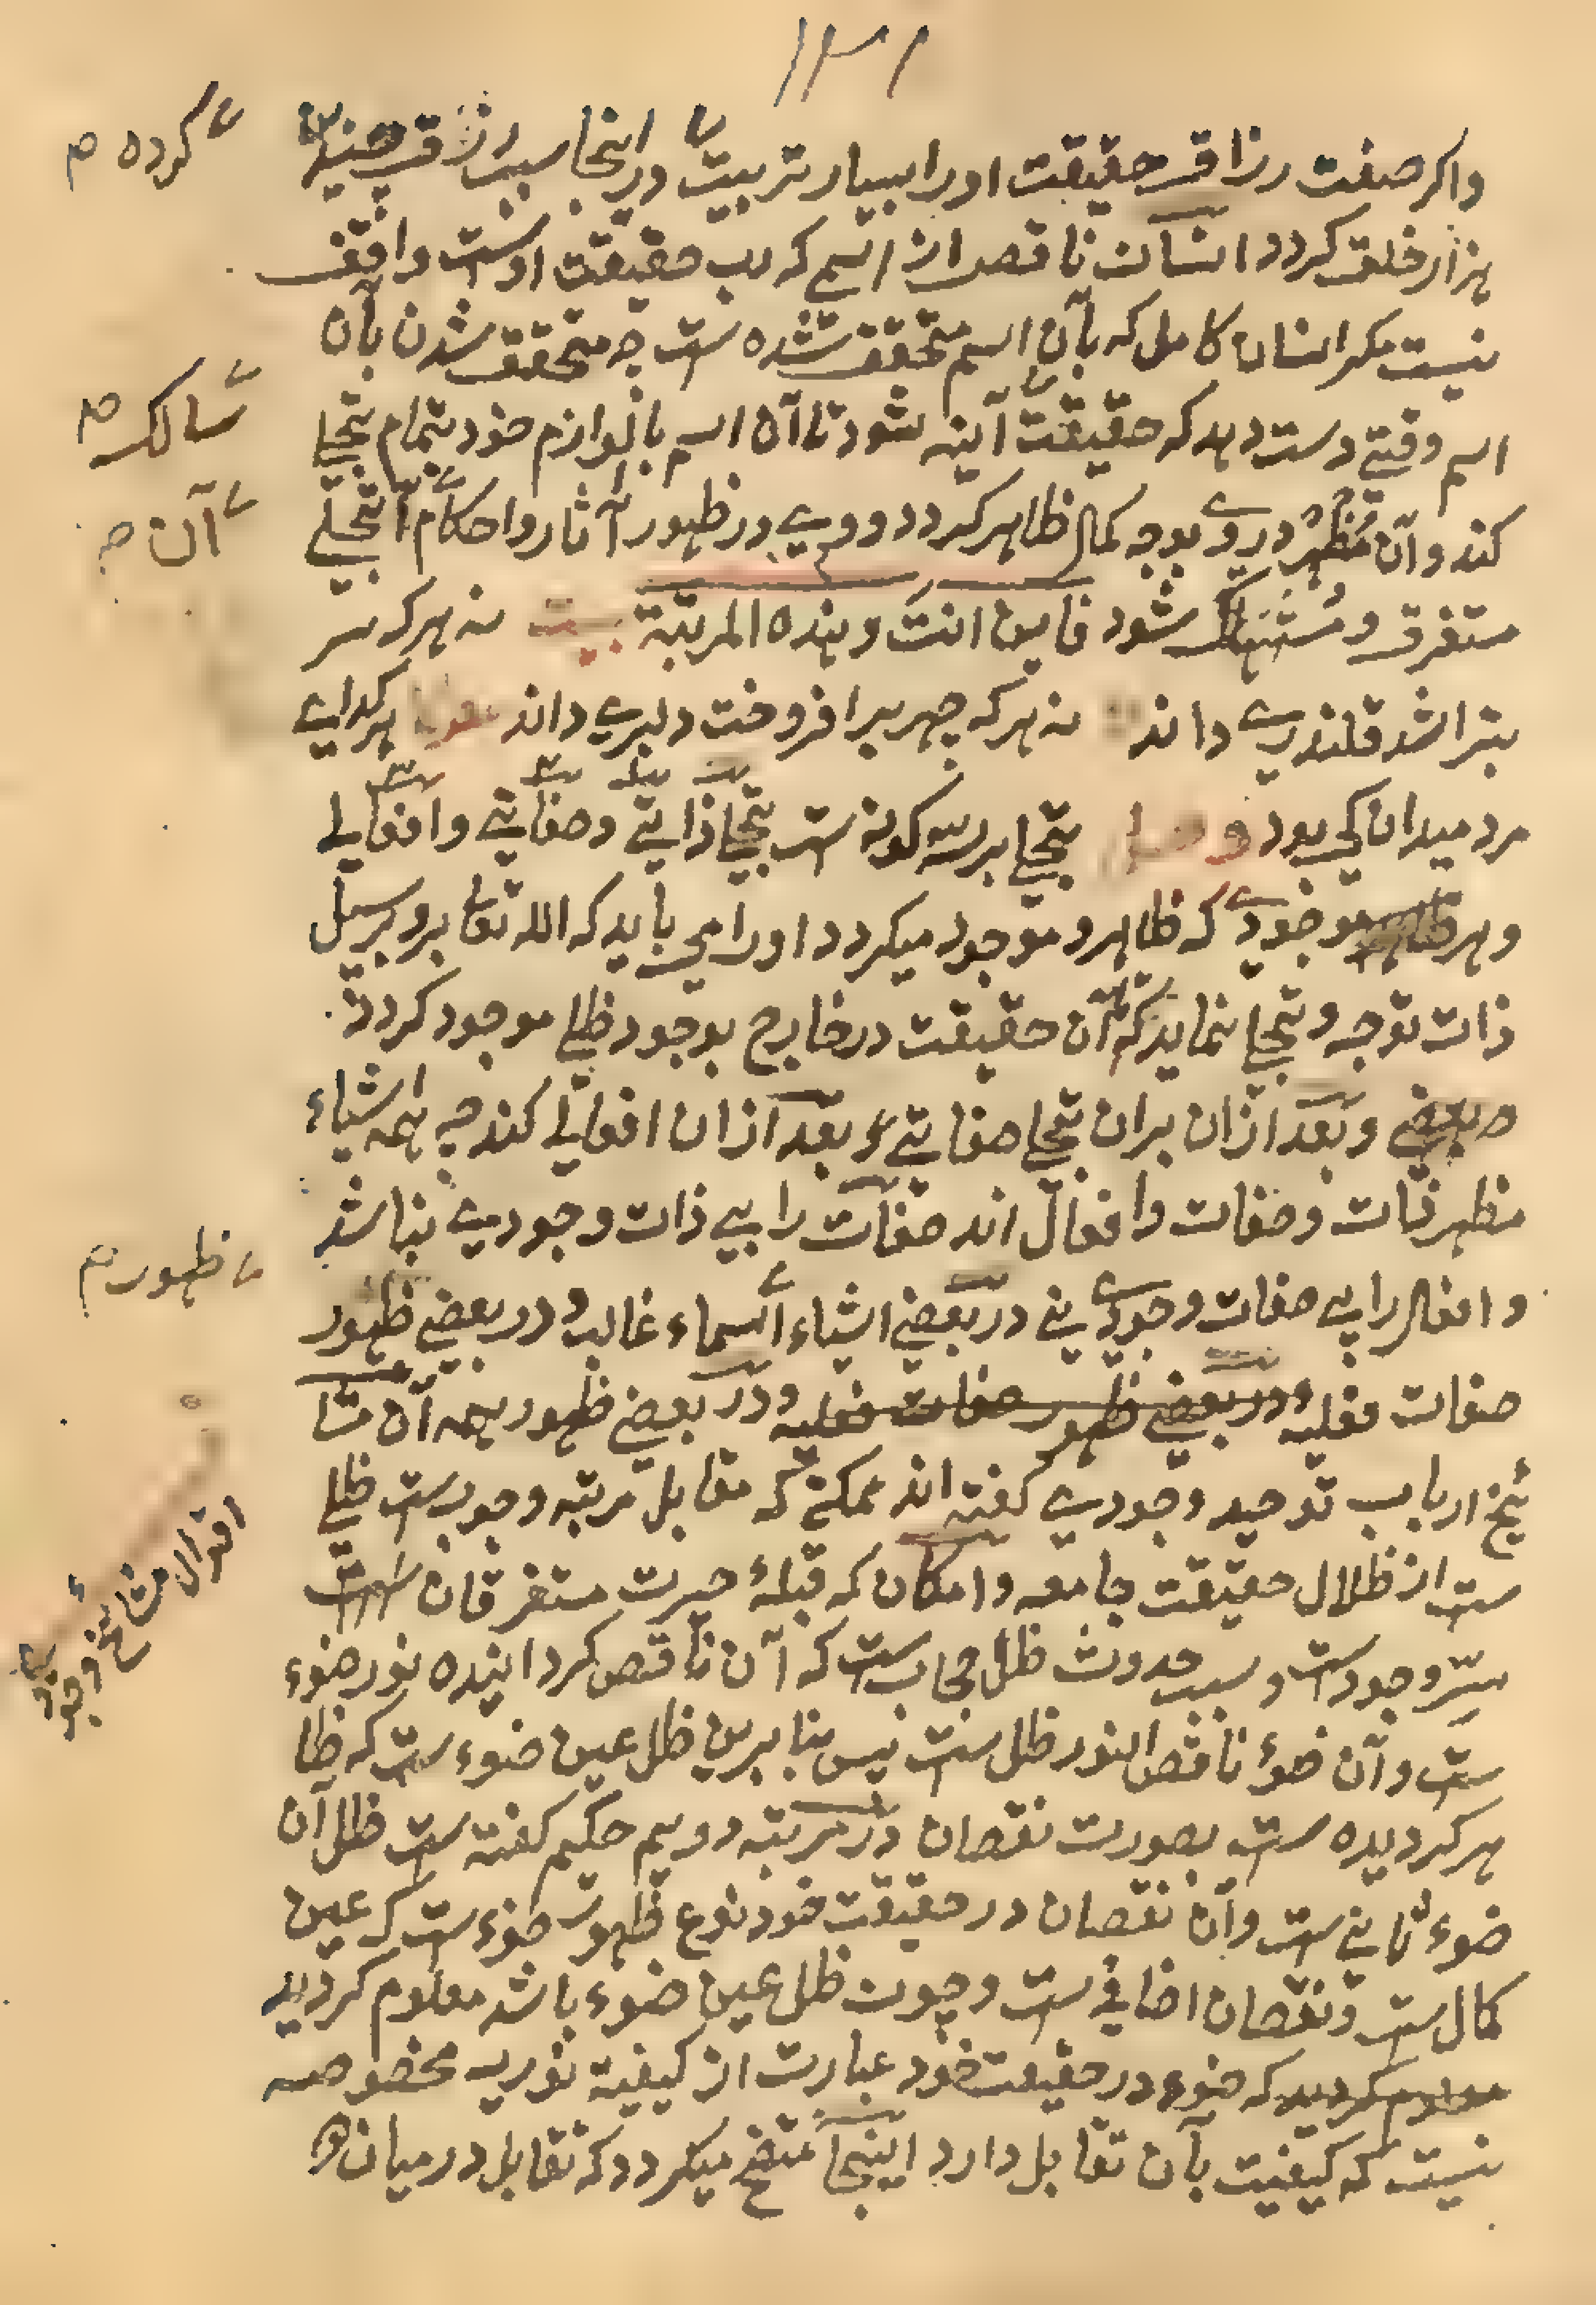 ۱۳۱
واکر صفت رزاقی حقیقت اورا بسیار تربیت در اینجا سبب رزق چندین
کرده صح
هزار خلق کردد انسان ناقص از اسمی که رب حقیقت اوست واقف
نیست مکر انسان کامل که بآن اسم متحقق شده ست چه متحقق شدن بآن
اسم وقتی دست دهد که حقیقت آینه شود تا آن اسم با لوازم خود بتمام تجلی
سالک صح
کند و آن مظهر در وی بوجه کمال ظاهر کردد و وی در ظهور آثار و احکام تجلی
آن صح
مستغرق و مستهلک شود فاین انت و هذه المرتبة بیت نه هر که سر
بتراشد قلندری داند نه هر که چهره برافروخت دلبری داند هر کدای
مرد میدان کی بود تجلی بر سه کونه ست تجلی ذاتی و صفاتی و افعالی
و هر موجودی که ظاهر و موجود میکردد اورا می باید که الله تعا برو بر سبیل
ذات توجه و تجلی نماید که آن حقیقت در خارج بوجود ظلی موجود کردد
و بعد ازان بران تجلی صفاتی و بعد ازان افعالی کند چه همه اشیاء
مظهر ذات و صفات و افعال اند صفات را بی ذات وجودی نباشد
و افعال را بی صفات وجودی نی در بعضی اشیاء اسماء غالب و در بعضی ظهور
ظهور صح
صفات فعلیه و در بعضی ظهور صفات فعلیه و در بعضی ظهور همه آن مشا
یخ ارباب توحید وجودی کفته اند ممکن که مقابل مرتبه وجوب ست ظلی
ست از ظلال حقیقت جامعه و امکان که قبلۀ حیرت مستغرقان ست
اقوال مشایخ وجودیه
سرّ وجودست و سبب حدوث ظل حجاب ست که آن ناقص کرداینده نور ضوء
ست و آن ضوء ناقص النور ظل ست پس بنا برین ظل عین ضوء ست که ظا
هر کردیده ست بصورت نقصان در مرتبه دویم حکیم کفته ست ظل آن
ضوء ثانی ست و آن نقصان در حقیقت خود نوع ظهور ضوء ست که عین
کمال ست و نقصان اضافی ست و چون ظل عین ضوء باشد معلوم کردید
معلوم کردید که ضوء در حقیقت خود عبارت از کیفیة نوریه مخصوصه
نیست که کیفیت بآن تقابل دارد اینجا متضح میکردد که تقابل درمیان